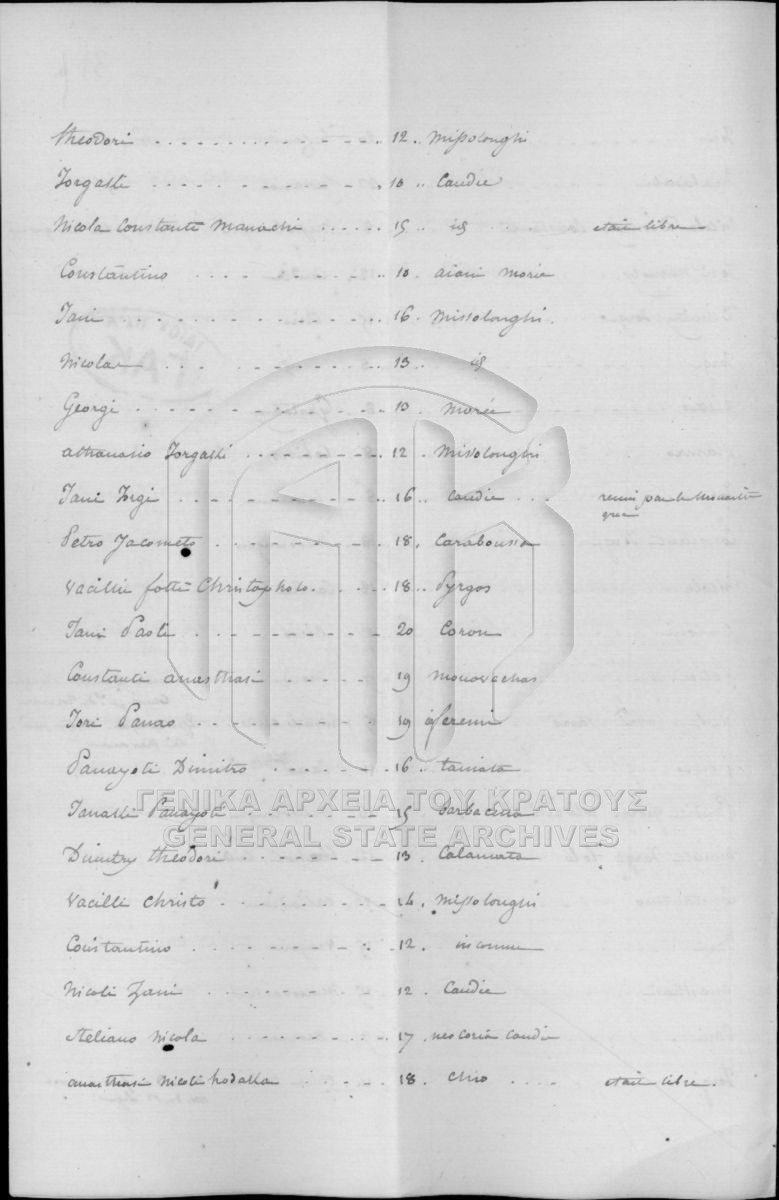 theodori . . . . . . . . . . . . . 12 . Missolonghi
Jorgatti . . . . . . . . . . . 10 .. Candie
Nicola Constanti Manachi . . . . . . 15 .. id . . . etait libre
Constantino . . . . . . . . . . 10 . Morée
Jani . . . . . . . . . . . . . 16 . Missolonghi .
Nicola . . . . . . . . . . . 13 . . id
Georgi . . . . . . . . . . . . 13 . Morée
athanasio Jorgatti . . . . . . . . . 12 . Missolonghi
Jani Jorgi . . . . . . . . . . . 16 .. Candie . . . remis par le
Petro Jacometo . . . . . . . . . 18 . Caraboussa
Vacilli fotti Christopholo . . . . . 18 .. Pyrgos
Jani Paoli . . . . . . . . . . 20 Coron
Constanti anasthasi . . . . . 19
Jori Panao . . . . . . . . . . 19
Panayoti Dimitro . . . . . . . 16 .
Janatti Panayoti . . . . . . . 15
Dimitry theodori . . . . . . . . 13 . Calamata
Vacilli Christo . . . . . . . . . . 14 . Missolonghi
Constantino . . . . . . . . . . 12 . inconnu
Nicoli Zani . . . . . . . . . . 12 . Candie
Steliano Nicola . . . . . . . . . 17 . Candie
anasthasi Nicoli . . . . . 18 . Chio . . . . etait libre .
ΓΕΝΙΚΑ ΑΡΧΕΙΑ ΤΟΥ ΚΡΑΤΟΥΣ
GENERAL STATE ARCHIVES